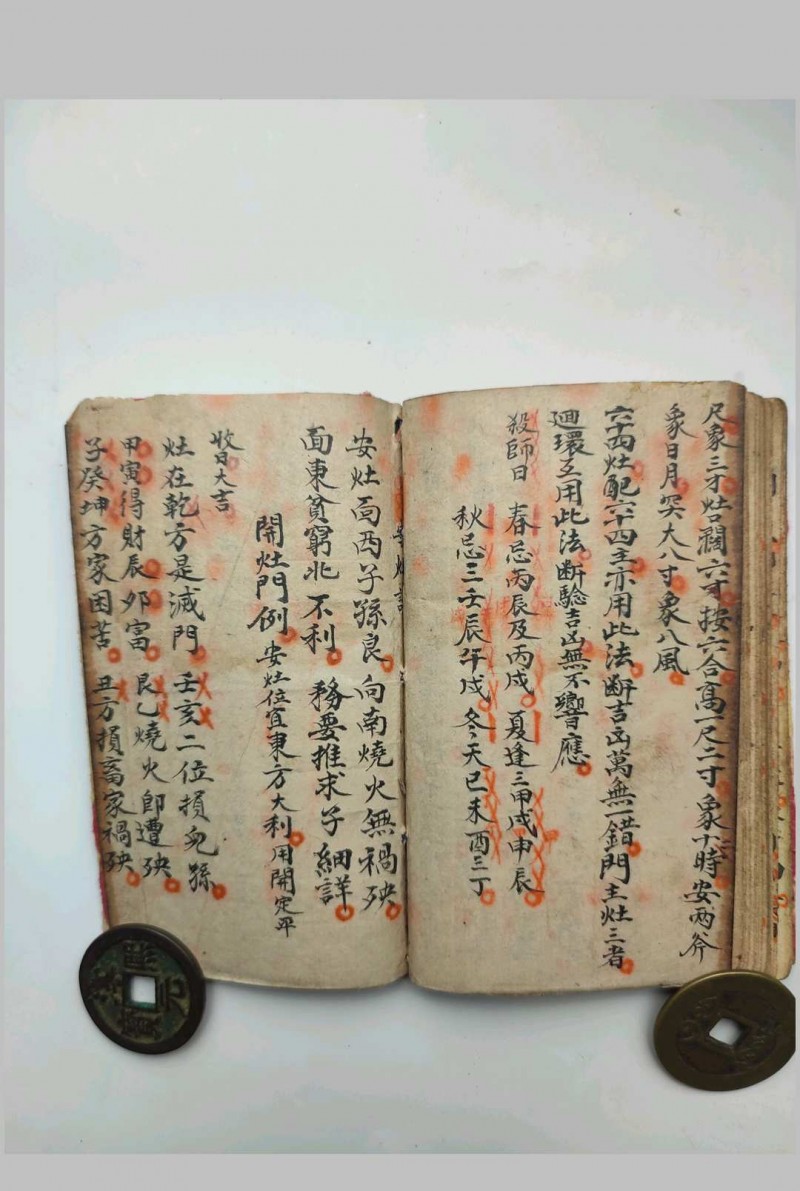 尺象三才灶濶六寸按六合高一尺二寸象十二時安両斧
象日月突大八寸象八風
六十四灶配六十四主亦用此法断吉凶萬無一錯門主灶三者
迴環互用此法断驗吉凶無不響應
殺師日 春忌丙辰及丙戌 夏逢三甲戌申辰
秋忌三壬辰午戌 冬天巳未酉三丁
安灶
安灶面西子孫良 向南燒火無禍殃
面東貧窮北不利 務要推求子細詳
開灶門例 安灶位宜東方大利 用開定平
收日大吉
灶在乾方是滅門 壬亥二位損兒孫
甲寅得財辰夘富 艮乙燒火即遭殃
子癸坤方家困苦 丑方損畜家禍殃